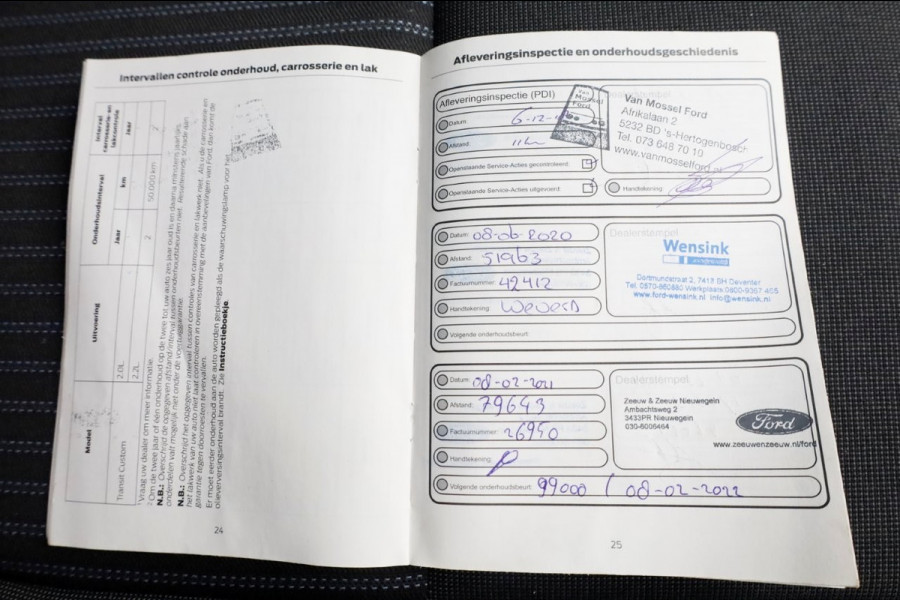 Intervallen controle onderhoud, carrosserie en lak
Model
Uitvoering
Onderhoudsinterval
Interval carrosserie- en lakcontrole
Jaar
km
Jaar
Transit Custom
2.0L
2
50.000 km
2.2L
Vraag uw dealer om meer informatie.
N.B.: Overschrijd de opgegeven afstand/interval tussen onderhoudsbeurten niet. Resulterende schade aan
onderdelen valt mogelijk niet onder de voertuiggarantie.
N.B.: Overschrijd het opgegeven interval tussen controles van carrosserie en lakwerk niet. Als u de carrosserie en
het lakwerk van uw auto niet laat controleren in overeenstemming met de aanbevelingen van Ford, dan komt de
garantie tegen doorroesten te vervallen.
Er moet eerder onderhoud aan de auto worden gepleegd als de waarschuwingslamp voor het
olieverversingsinterval brandt. Zie Instructieboekje.
24
Afleveringsinspectie en onderhoudsgeschiedenis
Afleveringsinspectie (PDI)
Datum
6-12-
Afstand
Openstaande Service-Acties gecontroleerd:
Openstaande Service-Acties uitgevoerd:
Van Mossel Ford
Van Mossel Ford
Afrikalaan 2
5232 BD 's-Hertogenbosch
Tel. 073 648 70 10
www.vanmosselford.nl
Handtekening:
Datum: 08-06-2020
Afstand: 51963
Factuurnummer: 42412
Handtekening: Wevers
Volgende onderhoudsbeurt:
Dealerstempel
Wensink
Dortmundstraat 2, 7418 BH Deventer
www.ford-wensink.nl info@wensink.nl
Datum: 08-02-2021
Afstand: 79643
Factuurnummer: 26950
Handtekening:
Volgende onderhoudsbeurt: 99000 / 08-02-2022
Dealerstempel
Zeeuw & Zeeuw Nieuwegein
Ambachtsweg 2
3433PR Nieuwegein
030-6006464
Ford
www.zeeuwenzeeuw.nl/ford
25